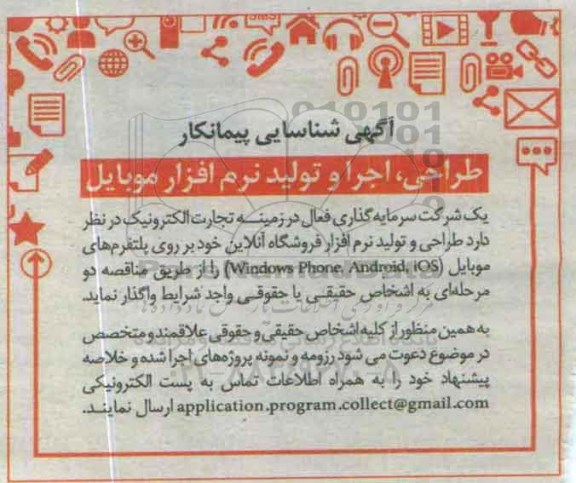 آگهی شناسایی پیمانکار
طراحی، اجرا و تولید نرم افزار موبایل
یک شرکت سرمایه گذاری فعال در زمینــه تجارت الکترونیک در نظر
دارد طراحی و تولید نرم افزار فروشگاه آنلاین خود بر روی پلتفرم‌های
موبایل (Windows Phone, Android, iOS) را از طریق مناقصه دو
مرحله‌ای به اشخاص حقیقــی یا حقوقــی واجد شرایط واگذار نماید.
به همین منظور از کلیه اشخاص حقیقی و حقوقی علاقمند و متخصص
در موضوع دعوت می شود رزومه و نمونه پروژه‌های اجرا شده و خلاصه
پیشنهاد خود را به همراه اطلاعات تماس به پست الکترونیکی
application.program.collect@gmail.com ارسال نمایند.